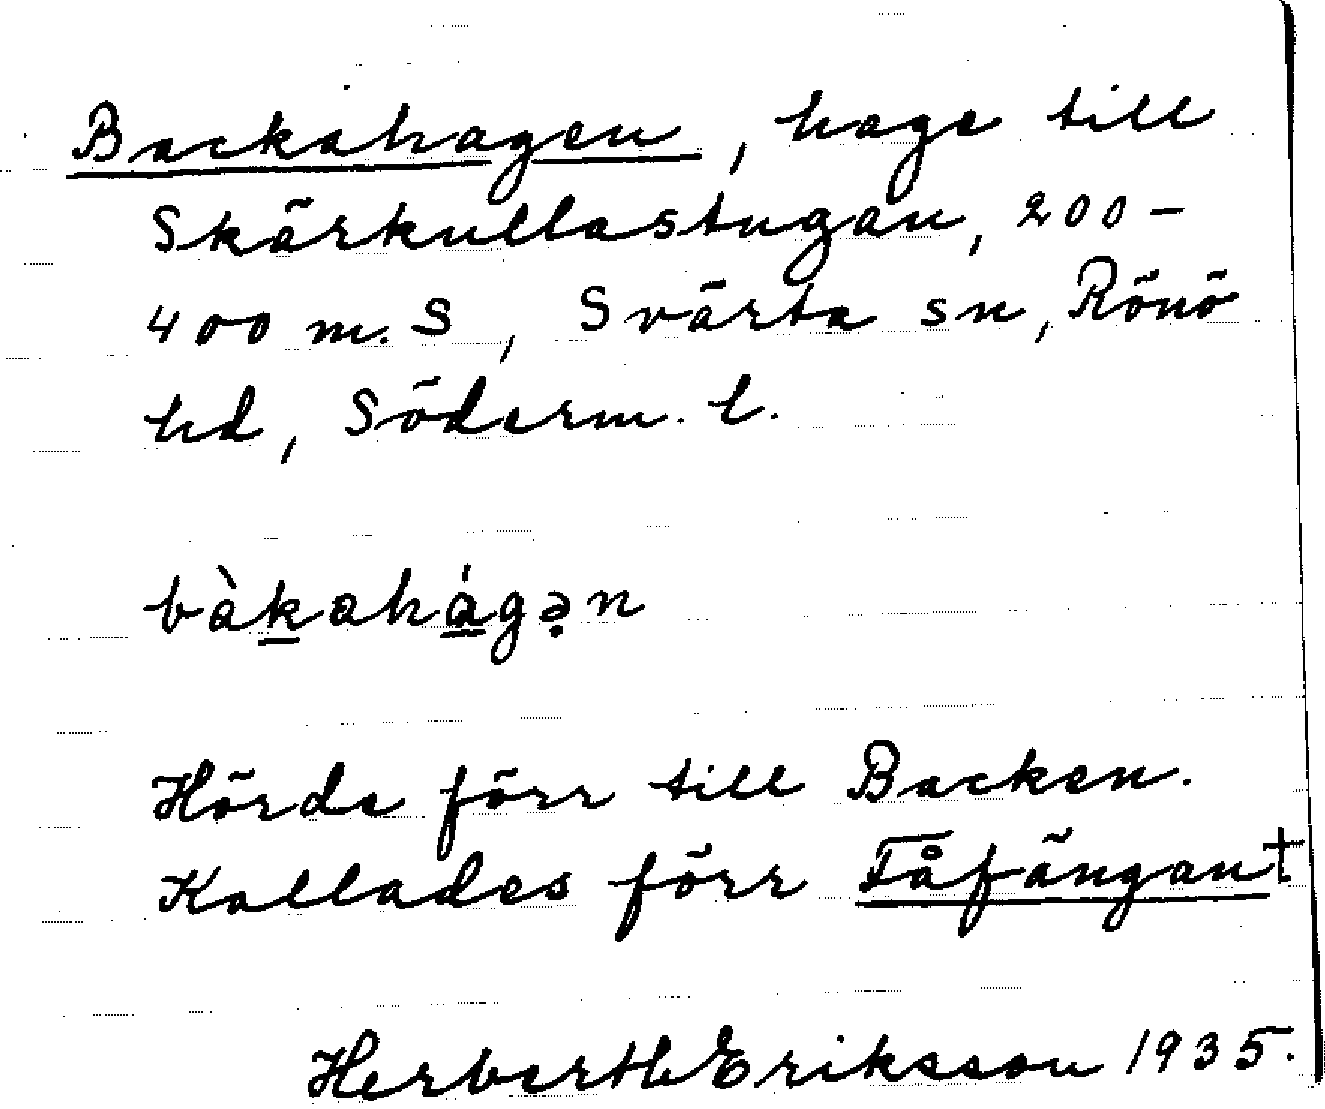 Backahagen, hage till
Skärkullastugan, 200-
400 m. S, Svärta sn, Rönö
hd, Söderm. l.
bàkahágə̣n
Hörde förr till Backen.
Kallades förr Fåfängan†
Herberth Eriksson 1935.